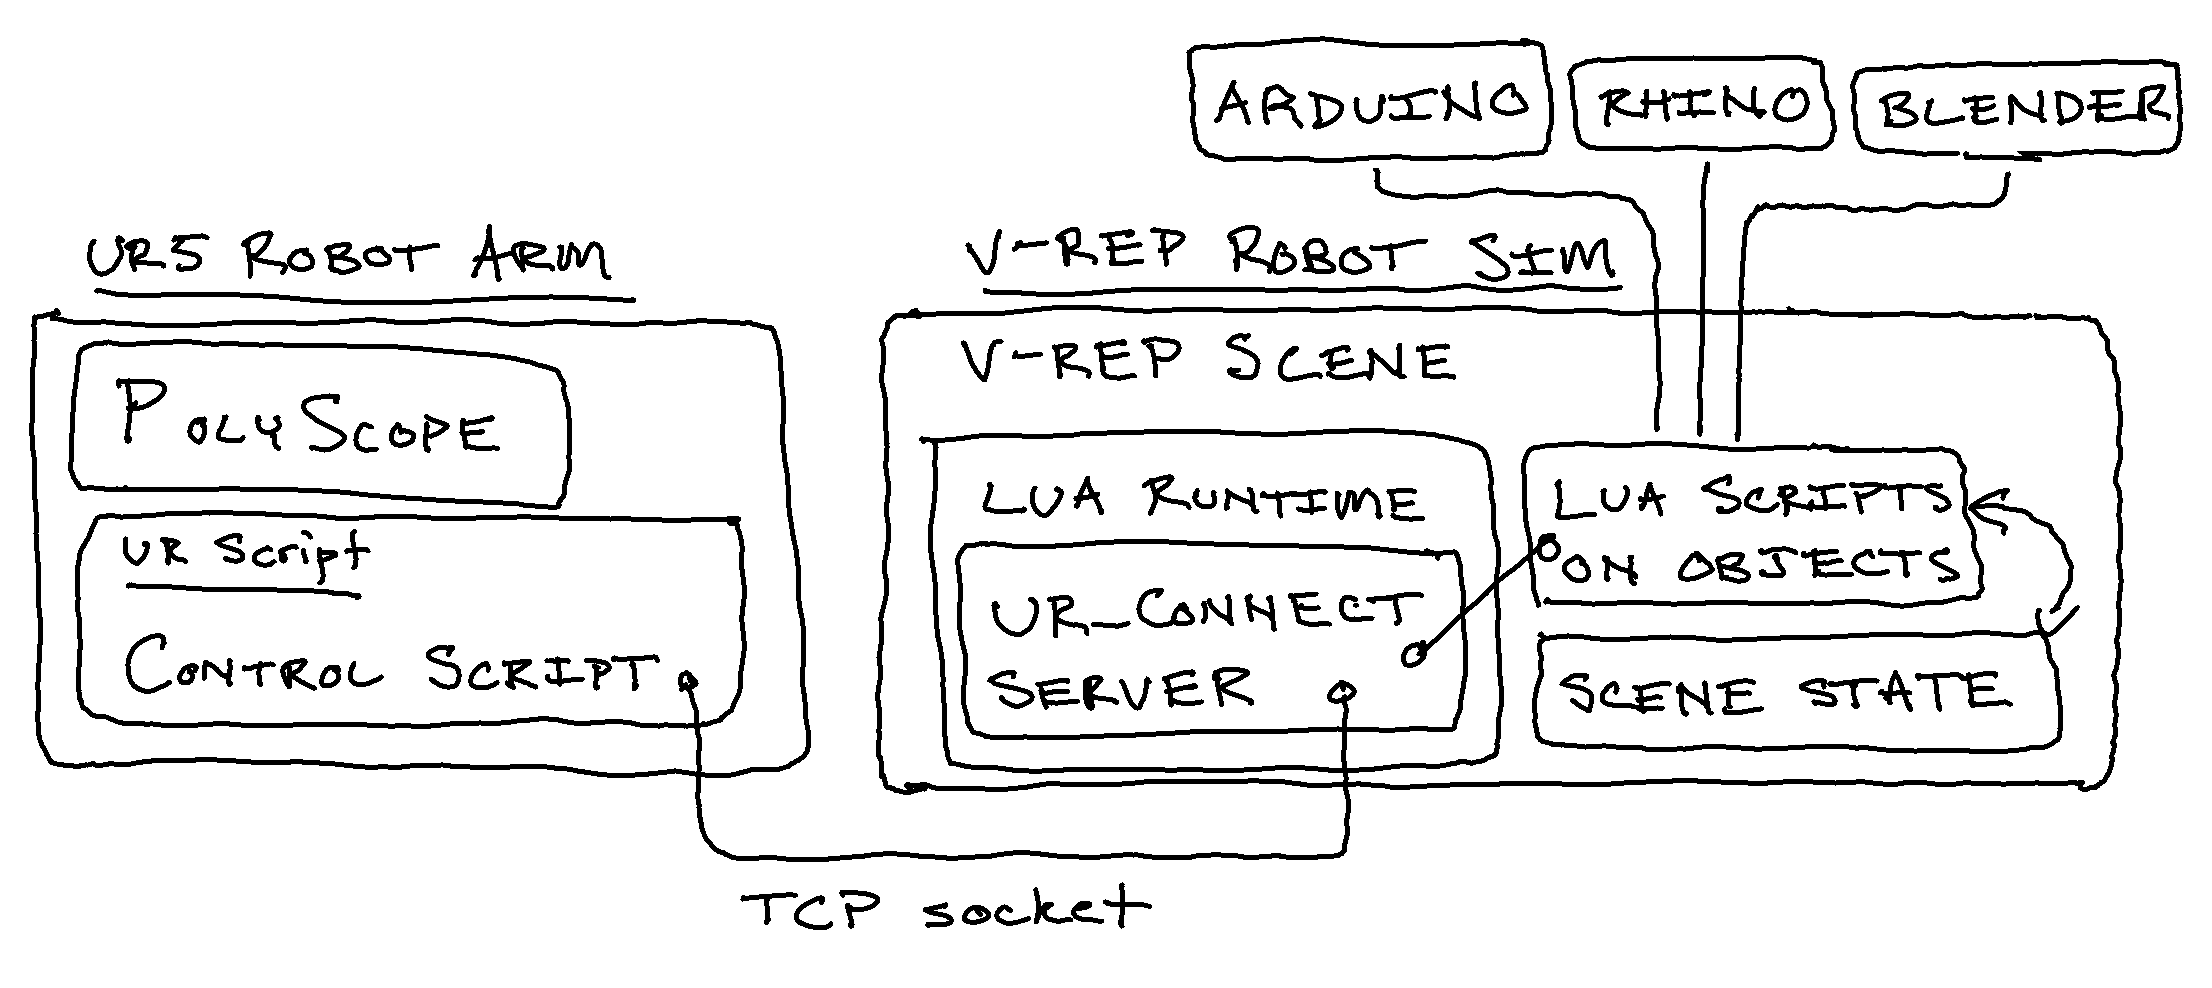 ARDUINO
RHINO
BLENDER
UR5 ROBOT ARM
V-REP ROBOT SIM
POLYSCOPE
UR Script
CONTROL SCRIPT
V-REP SCENE
LUA RUNTIME
UR_CONNECT
SERVER
LUA SCRIPTS
ON OBJECTS
SCENE STATE
TCP socket